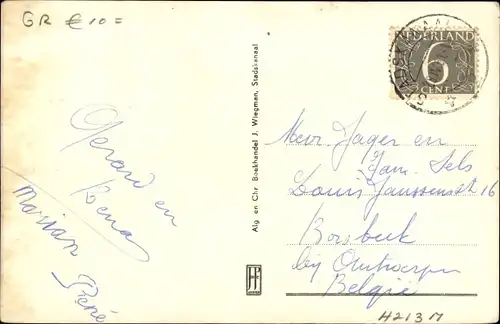 GR € 10=
NEDERLAND
6
CENT
Gerard en
Rena
Marian
René
Alg en Chr Boekhandel J. Wiegman, Stadskanaal
Jager en
Fam. Sels
Louis Janssensstr 16
Borsbeek
bij Antwerpen
België
4213 M